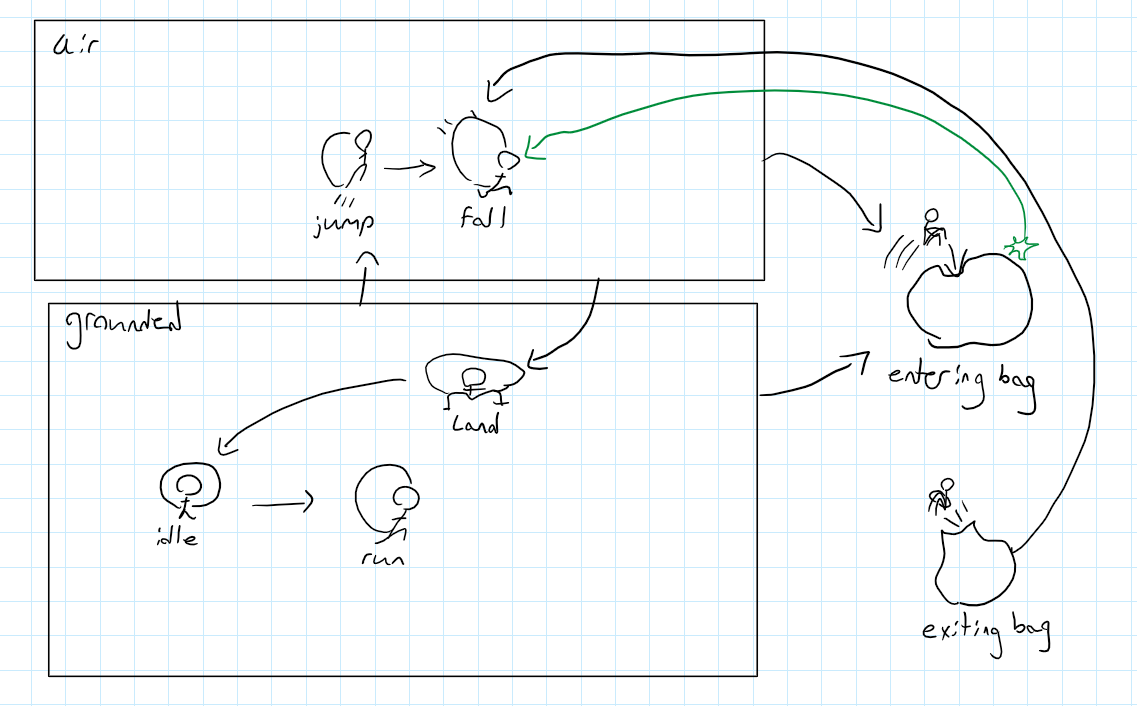 air
jump
fall
grounded
Land
idle
run
entering bag
exiting bag